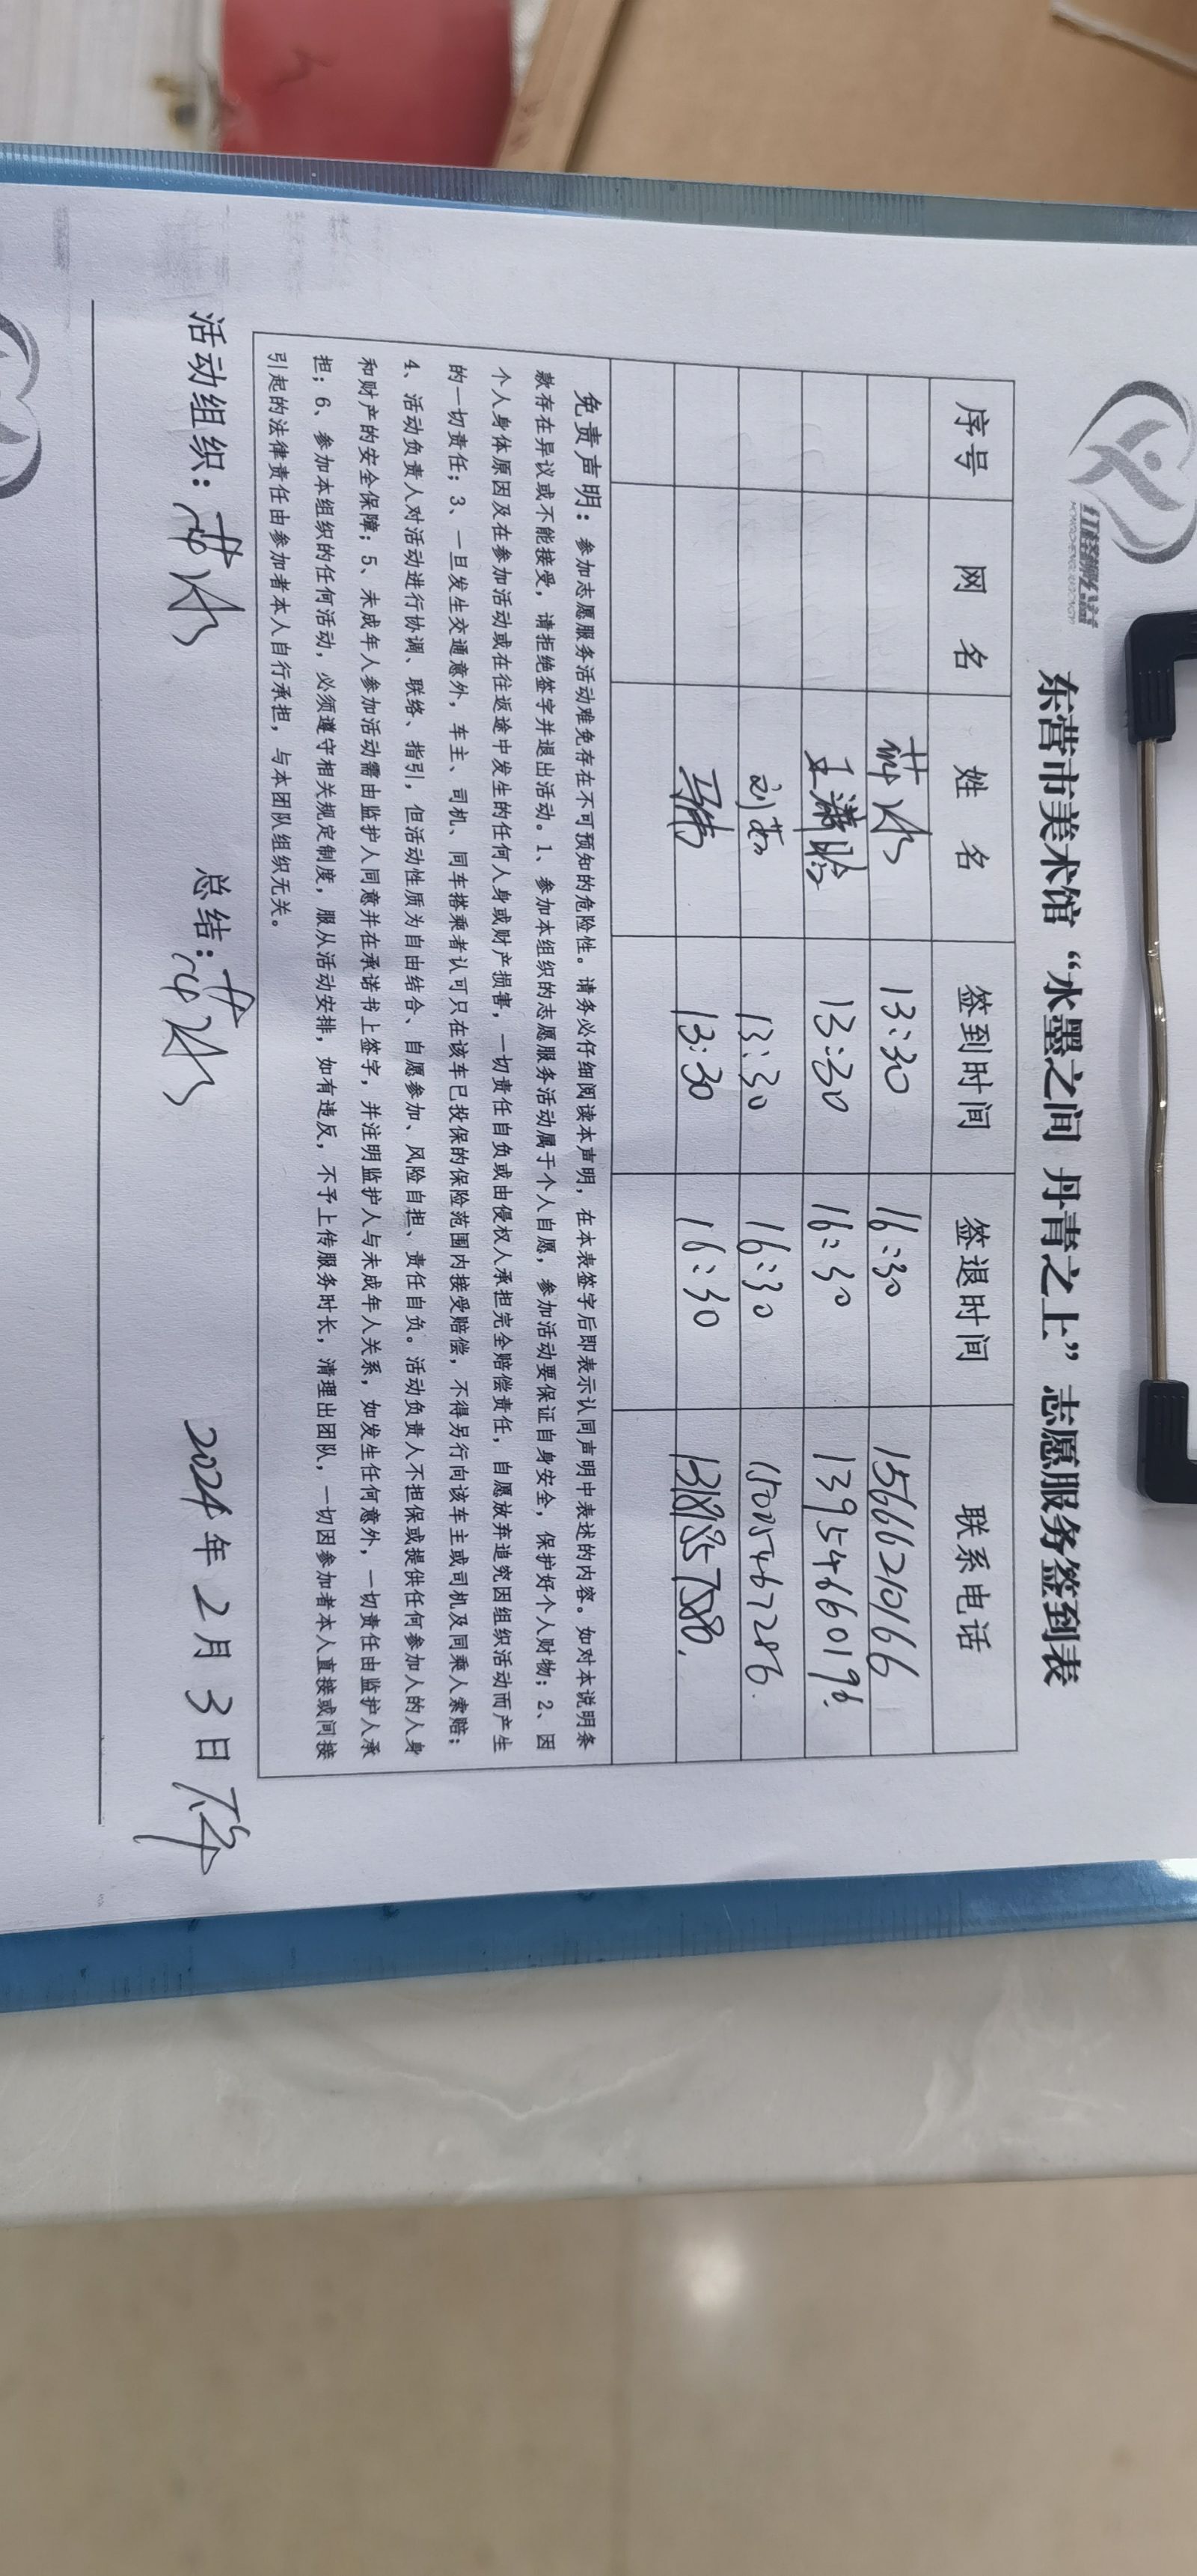 东营市美术馆“水墨之间 丹青之上”志愿服务签到表
序号 网 名 姓 名 签到时间 签退时间 联系电话
13:30 16:30 15666210166
13:30 16:30
刘茹 13:30 16:30 15005467286.
马伟 13:30 16:30 13181857580.
免责声明：参加志愿服务活动难免存在不可预知的危险性。请务必仔细阅读本声明，在本表签字后即表示认同声明中表述的内容。如对本说明条
款存在异议或不能接受，请拒绝签字并退出活动。1、参加本组织的志愿服务活动属于个人自愿，参加活动要保证自身安全，保护好个人财物；2、因
个人身体原因及在参加活动或在往返途中发生的任何人身或财产损害，一切责任自负或由侵权人承担完全赔偿责任，自愿放弃追究因组织活动而产生
的一切责任；3、一旦发生交通意外，车主、司机、同车搭乘者认可只在该车已投保的保险范围内接受赔偿，不得另行向该车主或司机及同乘人索赔；
4、活动负责人对活动进行协调、联络、指引，但活动性质为自由结合、自愿参加、风险自担、责任自负。活动负责人不担保或提供任何参加人的人身
和财产的安全保障；5、未成年人参加活动需由监护人同意并在承诺书上签字，并注明监护人与未成年人关系，如发生任何意外，一切责任由监护人承
担；6、参加本组织的任何活动，必须遵守相关规定制度，服从活动安排，如有违反，不予上传服务时长，清理出团队，一切因参加者本人直接或间接
引起的法律责任由参加者本人自行承担，与本团队组织无关。
活动组织： 总结： 2024年2月3日下午